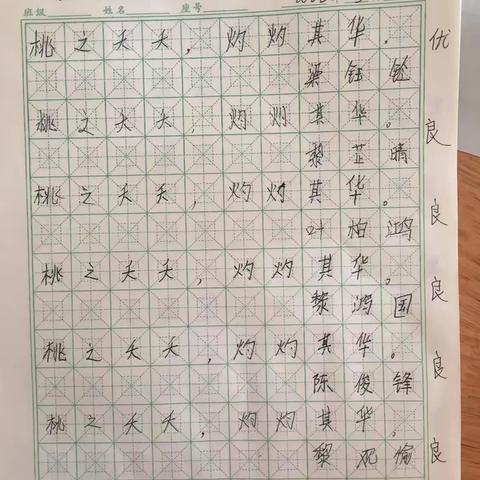 班级 姓名 座号
桃之夭夭，灼灼其华。优
梁钰铋
桃之夭夭，灼灼其华。良
黎芷晴
桃之夭夭，灼灼其华。良
叶柏鸿
桃之夭夭，灼灼其华。良
黎鸿国
桃之夭夭，灼灼其华。良
陈俊锋
桃之夭夭，灼灼其华。良
黎